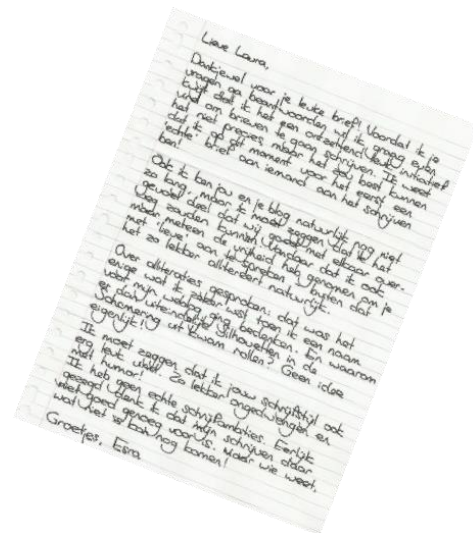 Lieve Laura,
Dankjewel voor je leuke brief! Voordat ik je
vragen ga beantwoorden wil ik graag even
kwijt dat ik het een ontzettend leuk initiatief
vind om brieven te gaan schrijven. Ik weet
het niet precies, maar het zou best kunnen
dat ik op dit moment voor het eerst een
'echte' brief aan iemand aan het schrijven
ben!
Ook ik ken jou en je blog natuurlijk nog niet
zo lang, maar ik moet zeggen dat ik het
gevoel deel dat wij goed met elkaar over-
weg zouden kunnen. Vandaar dat ik ook
maar meteen de vrijheid heb genomen om je
met 'lieve' aan te spreken. Buiten dat
het zo lekker allitereert natuurlijk.
Over alliteraties gesproken: dat was het
enige wat ik zeker wist toen ik een naam
voor mijn weblog ging bedenken. En waarom
er dan uiteindelijk Silhouetten in de
Schemering uit kwam rollen? Geen idee
eigenlijk!
Ik moet zeggen dat ik jouw schrijfstijl ook
erg leuk vind! Zo lekker ongedwongen en
met humor!
Ik heb geen echte schrijfambities. Eerlijk
gezegd denk ik dat mijn schrijven daar
niet goed genoeg voor is. Maar wie weet,
wat niet is kan nog komen!
Groetjes, Esra